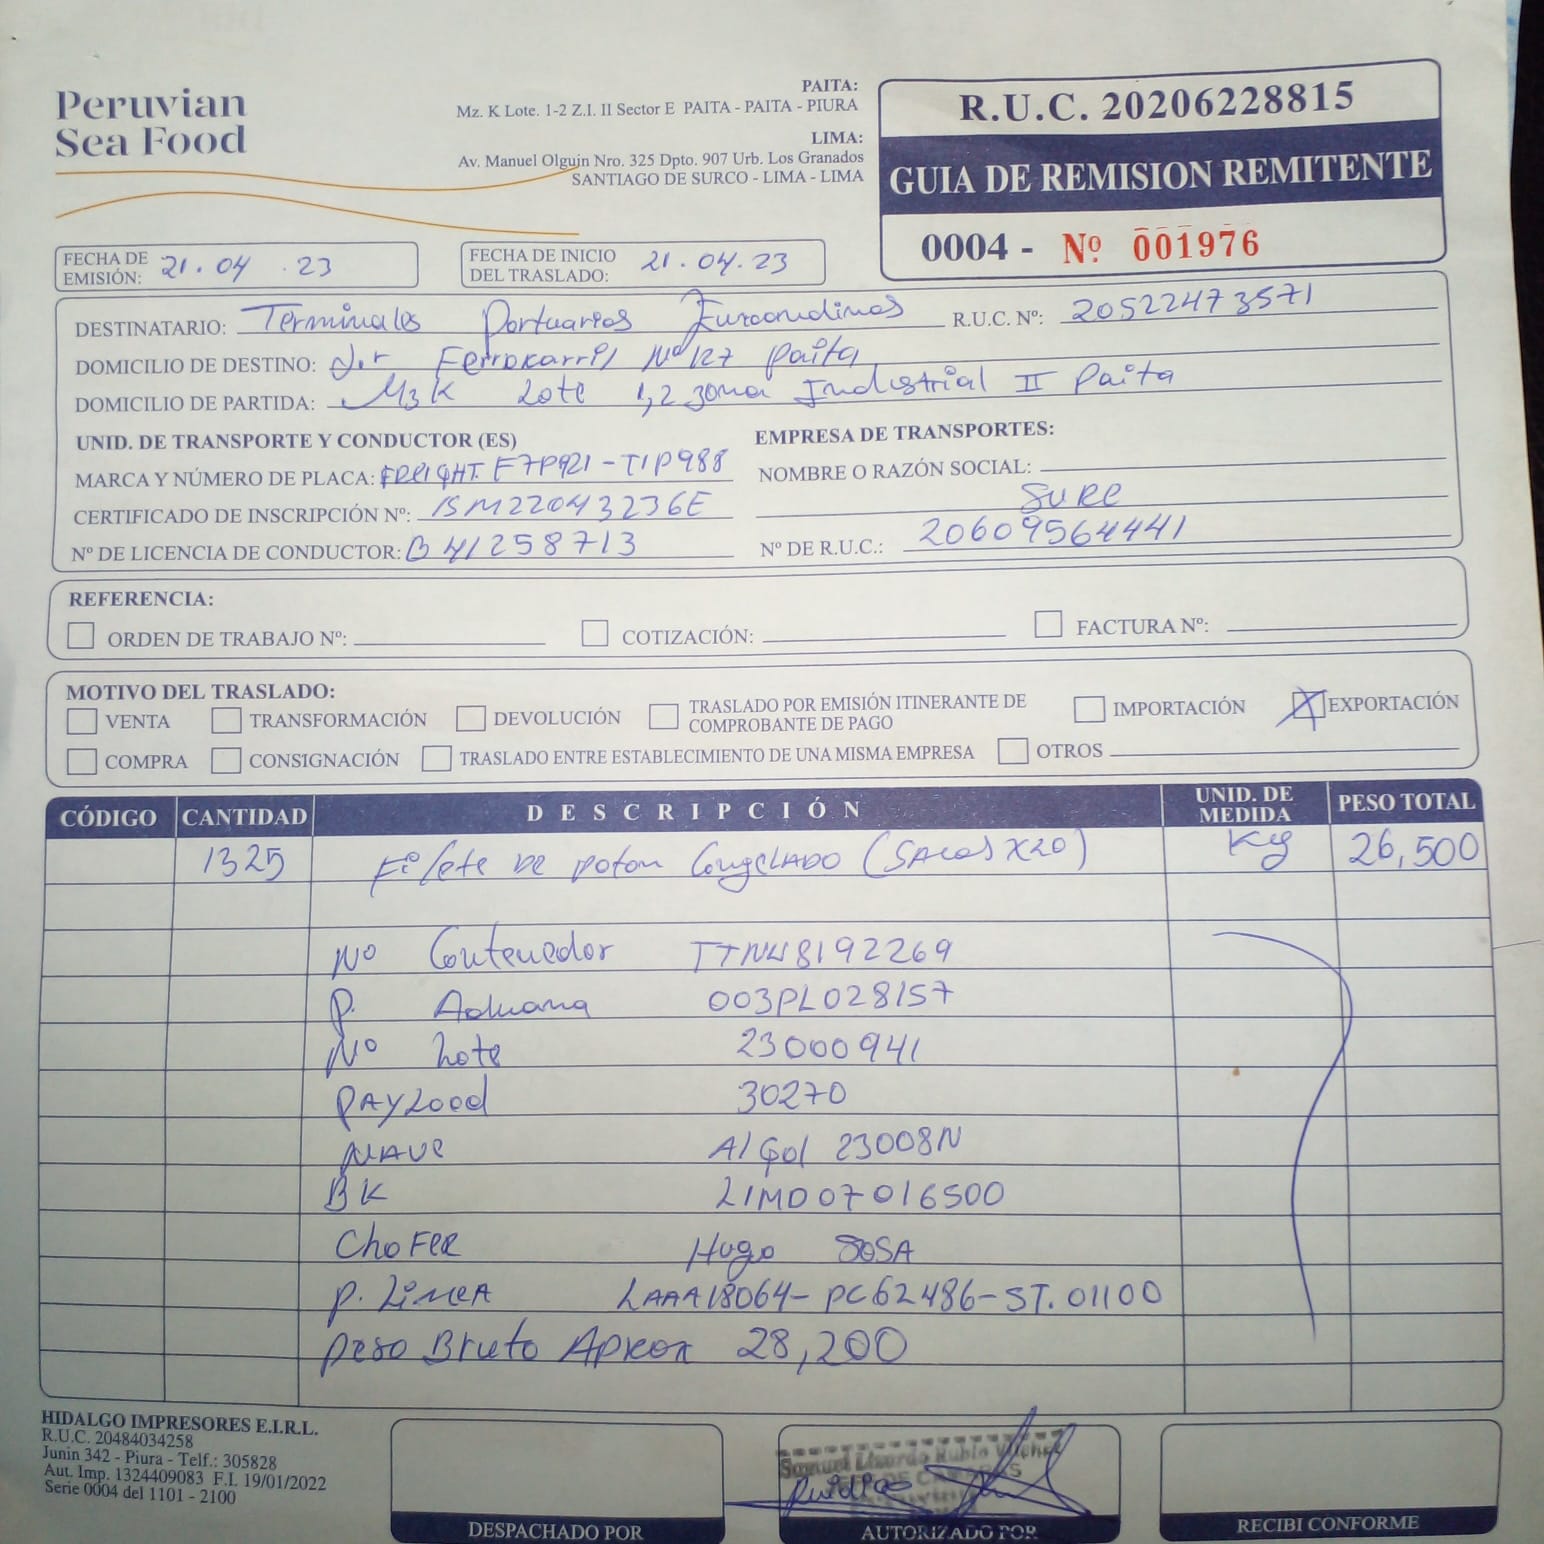 Peruvian
Sea Food
PAITA:
Mz. K Lote. 1-2 Z.I. II Sector E PAITA - PAITA - PIURA
LIMA:
Av. Manuel Olguin Nro. 325 Dpto. 907 Urb. Los Granados
SANTIAGO DE SURCO - LIMA - LIMA
R.U.C. 20206228815
GUIA DE REMISION REMITENTE
0004 - Nº 001976
FECHA DE EMISIÓN: 21.04.23
FECHA DE INICIO DEL TRASLADO: 21.04.23
DESTINATARIO: Terminales Portuarios Euroandinos R.U.C. Nº: 20522473571
DOMICILIO DE DESTINO: Jr Ferrokarril Nº 127 Paita
DOMICILIO DE PARTIDA: Mz K Lote 1,2 zona Industrial II Paita
UNID. DE TRANSPORTE Y CONDUCTOR (ES)
MARCA Y NÚMERO DE PLACA: FREIGHT. F7P921-T1P988
CERTIFICADO DE INSCRIPCIÓN Nº: 15M22043236E
Nº DE LICENCIA DE CONDUCTOR: B41258713
EMPRESA DE TRANSPORTES:
NOMBRE O RAZÓN SOCIAL:
Nº DE R.U.C.: 20609564441
REFERENCIA:
ORDEN DE TRABAJO Nº: COTIZACIÓN: FACTURA Nº:
MOTIVO DEL TRASLADO:
VENTA TRANSFORMACIÓN DEVOLUCIÓN TRASLADO POR EMISIÓN ITINERANTE DE COMPROBANTE DE PAGO IMPORTACIÓN X EXPORTACIÓN
COMPRA CONSIGNACIÓN TRASLADO ENTRE ESTABLECIMIENTO DE UNA MISMA EMPRESA OTROS
CÓDIGO CANTIDAD DESCRIPCIÓN UNID. DE MEDIDA PESO TOTAL
1325 Filete de poton Congelado (SACOS X20) Kg 26,500
Nº Contenedor TTNU8192269
P. Aduana 003PL028157
Nº Lote 23000941
PAYLoad 30270
NAVE Algol 23008N
BK LIMD07016500
ChoFER Hugo SOSA
P. LineA LAAA18064-PC62486-ST.01100
Peso Bruto Aprox 28,200
HIDALGO IMPRESORES E.I.R.L.
R.U.C. 20484034258
Junin 342 - Piura - Telf.: 305828
Aut. Imp. 1324409083 F.I. 19/01/2022
Serie 0004 del 1101 - 2100
DESPACHADO POR
Samuel Lisardo Rubio Vilchez
AUTORIZADO POR
RECIBI CONFORME